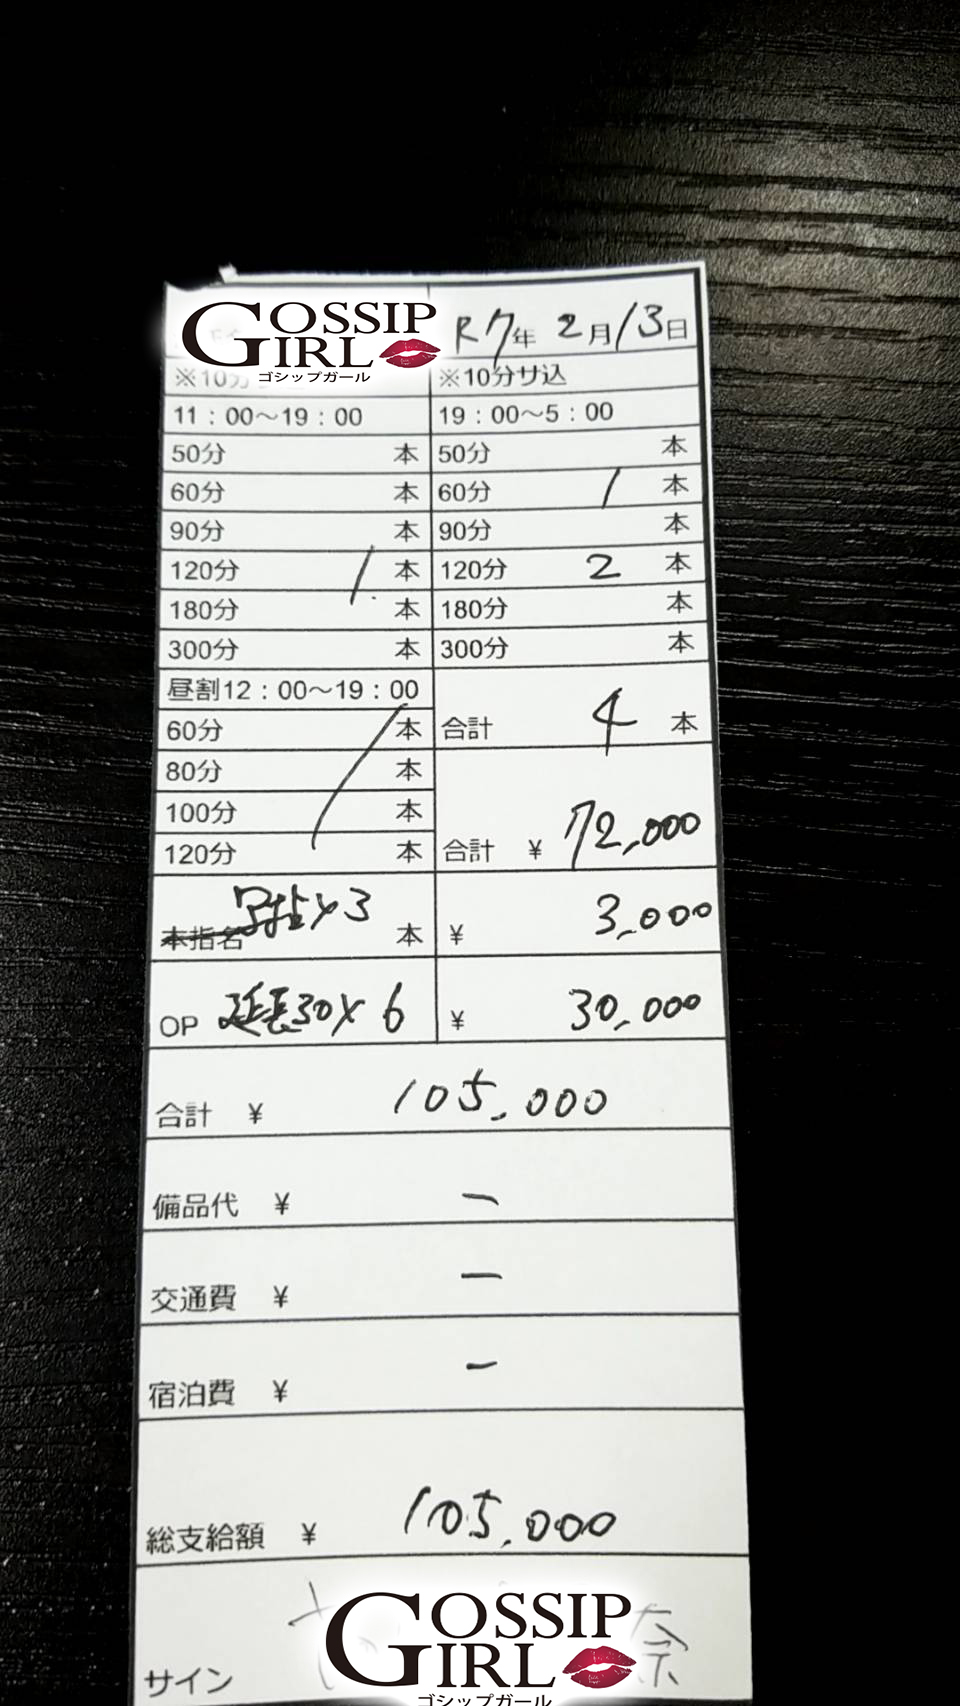 GOSSIP GIRL
ゴシップガール
R7年 2月13日
※10分 ※10分サ込
11：00～19：00 19：00～5：00
50分 本 50分 本
60分 本 60分 1 本
90分 本 90分 本
120分 1 本 120分 2 本
180分 本 180分 本
300分 本 300分 本
昼割12：00～19：00
60分 本 合計 4 本
80分 本
100分 本
120分 本 合計 ¥ 72,000
本指名 写指x3 本 ¥ 3,000
OP 延長30x6 ¥ 30,000
合計 ¥ 105,000
備品代 ¥ ー
交通費 ¥ ー
宿泊費 ¥ ー
総支給額 ¥ 105,000
サイン 奈
GOSSIP GIRL
ゴシップガール